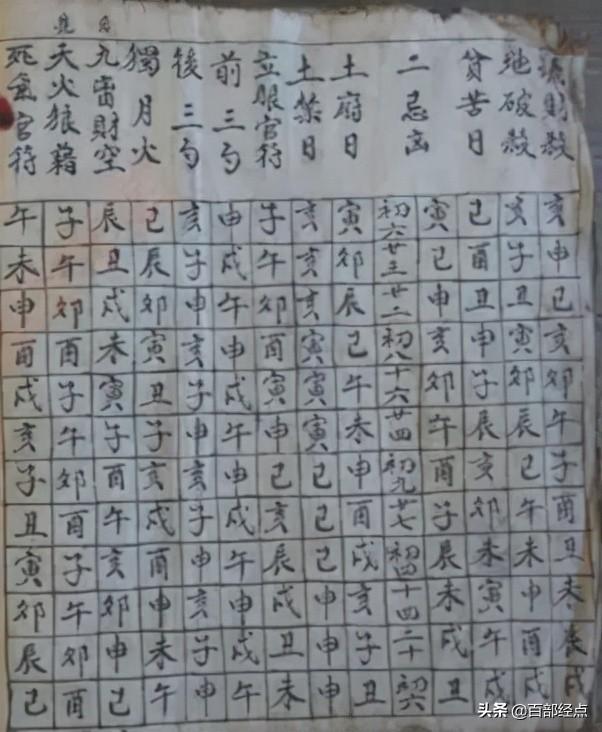 財殺
地破殺
貧苦日
二忌凶
土府日
土禁日
立眼官符
前三勺
後三勺
獨月火
九宙財空
天火狼藉
死氣官符
亥 申 巳 亥 卯 午 子 酉 丑 未 辰 戌
亥 子 丑 寅 卯 辰 巳 午 未 申 酉 戌
巳 酉 丑 申 子 辰 亥 卯 未 寅 午 戌
寅 巳 申 亥 卯 午 酉 子 辰 未 戌 丑
初六 廿三 廿二 初八 十六 廿四 初九 廿七 初四 十四 二十 初六
寅 卯 辰 巳 午 未 申 酉 戌 亥 子 丑
亥 亥 亥 寅 寅 寅 巳 巳 巳 申 申 申
子 午 卯 酉 寅 申 巳 亥 辰 戌 丑 未
申 戌 午 申 戌 午 申 戌 午 申 戌 午
亥 子 申 亥 子 申 亥 子 申 亥 子 申
巳 辰 卯 寅 丑 子 亥 戌 酉 申 未 午
辰 丑 戌 未 寅 子 酉 午 亥 卯 申 巳
子 午 卯 酉 子 午 卯 酉 子 午 卯 酉
午 未 申 酉 戌 亥 子 丑 寅 卯 辰 巳
头条 @百部经点